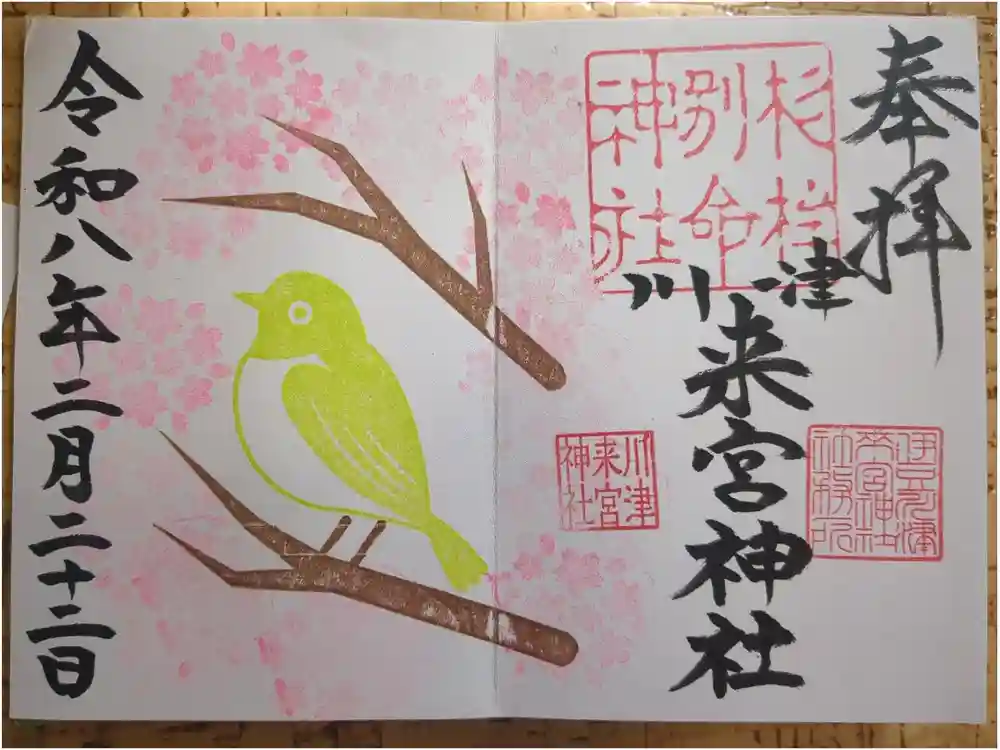 奉拝
杉桙
別命
神社
川津
来宮神社
伊豆河津
来宮神社
社務所
川津
来宮
神社
令和八年二月二十二日